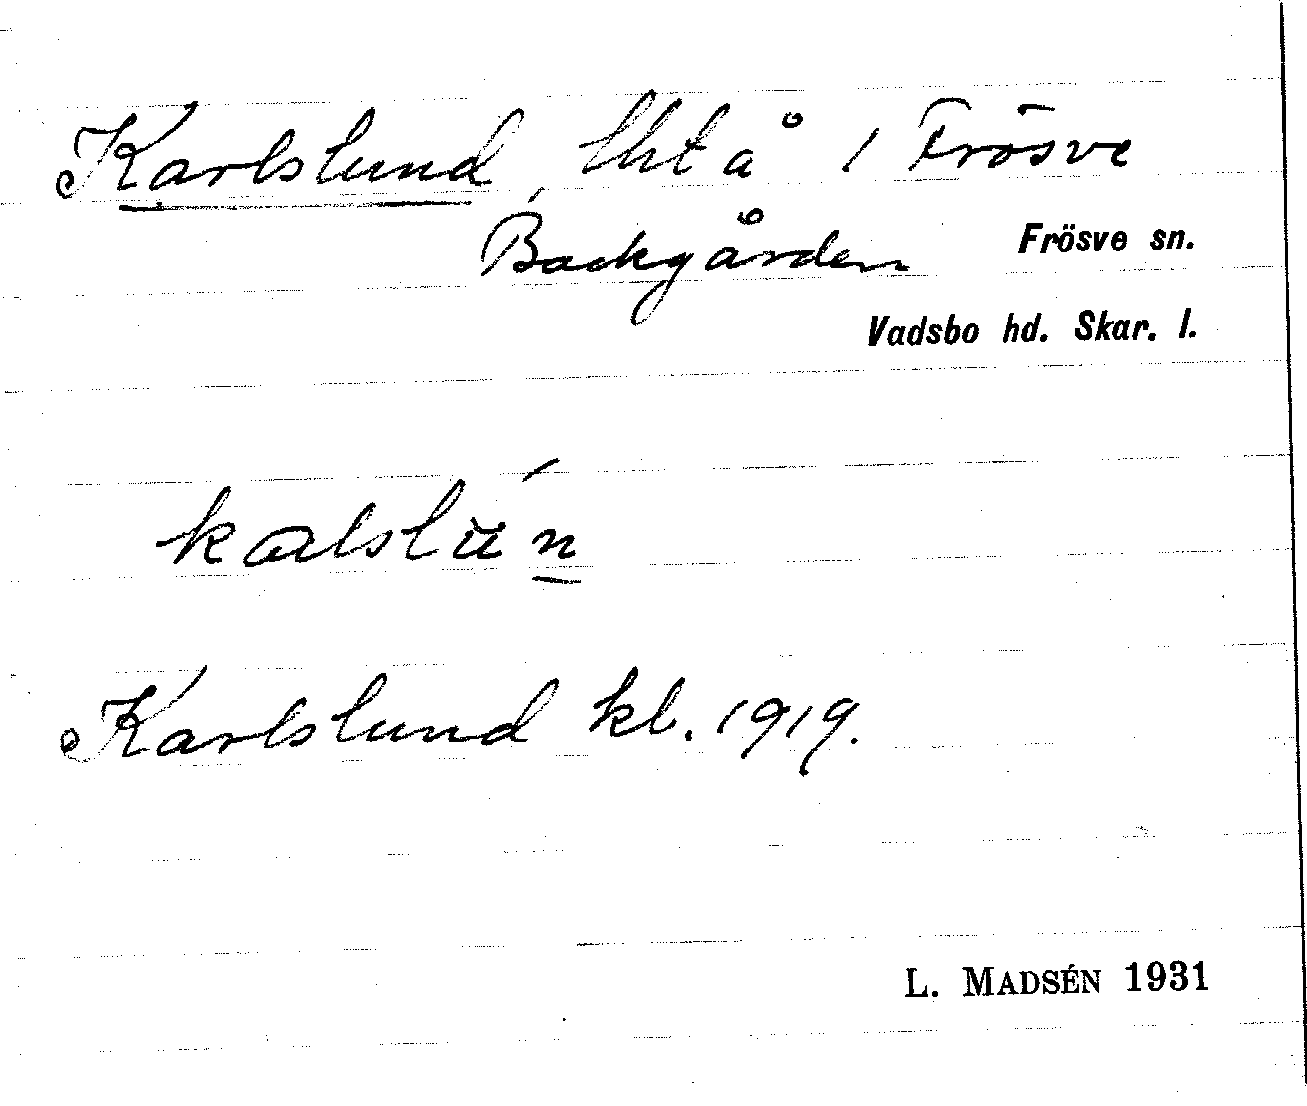 Karlslund, lht å 1 Frösve
Backgården Frösve sn.
Vadsbo hd. Skar. l.
kalslún
Karlslund kl. 1919.
L. MADSÉN 1931